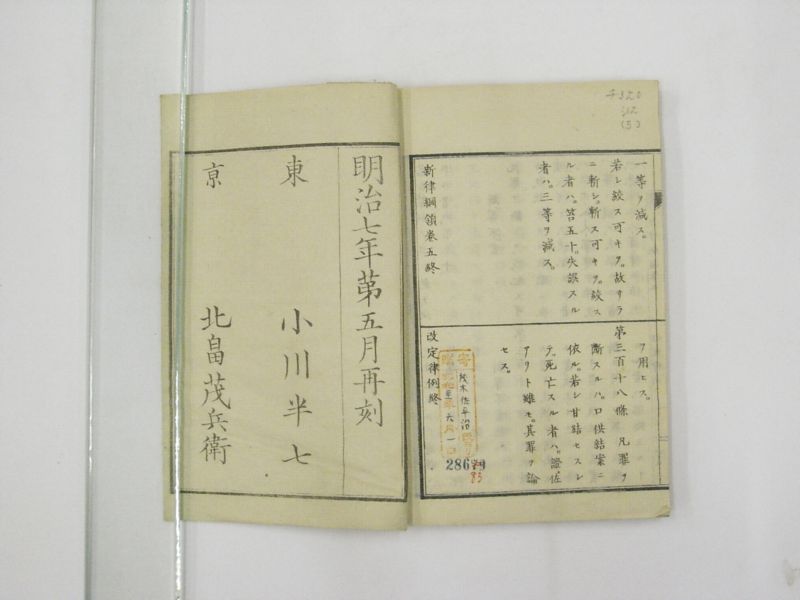 一等ヲ減ス。
若シ絞ス可キヲ。故サラ
ニ斬シ。斬ス可キヲ。絞ス
ル者ハ。笞五十。失誤スル
者ハ。三等ヲ減ス。
新律綱領巻五終
ヲ用ヒス。
第三百十八條 凡罪ヲ
断スルハ。口供結案ニ
依ル。若シ甘結セスシ
テ。死亡スル者ハ。證佐
アリト雖モ。其罪ヲ論
セス。
改定律例終
茂木佐平治
286
83
320
(5)
明治七年第五月再刻
東
小川半七
京
北畠茂兵衛